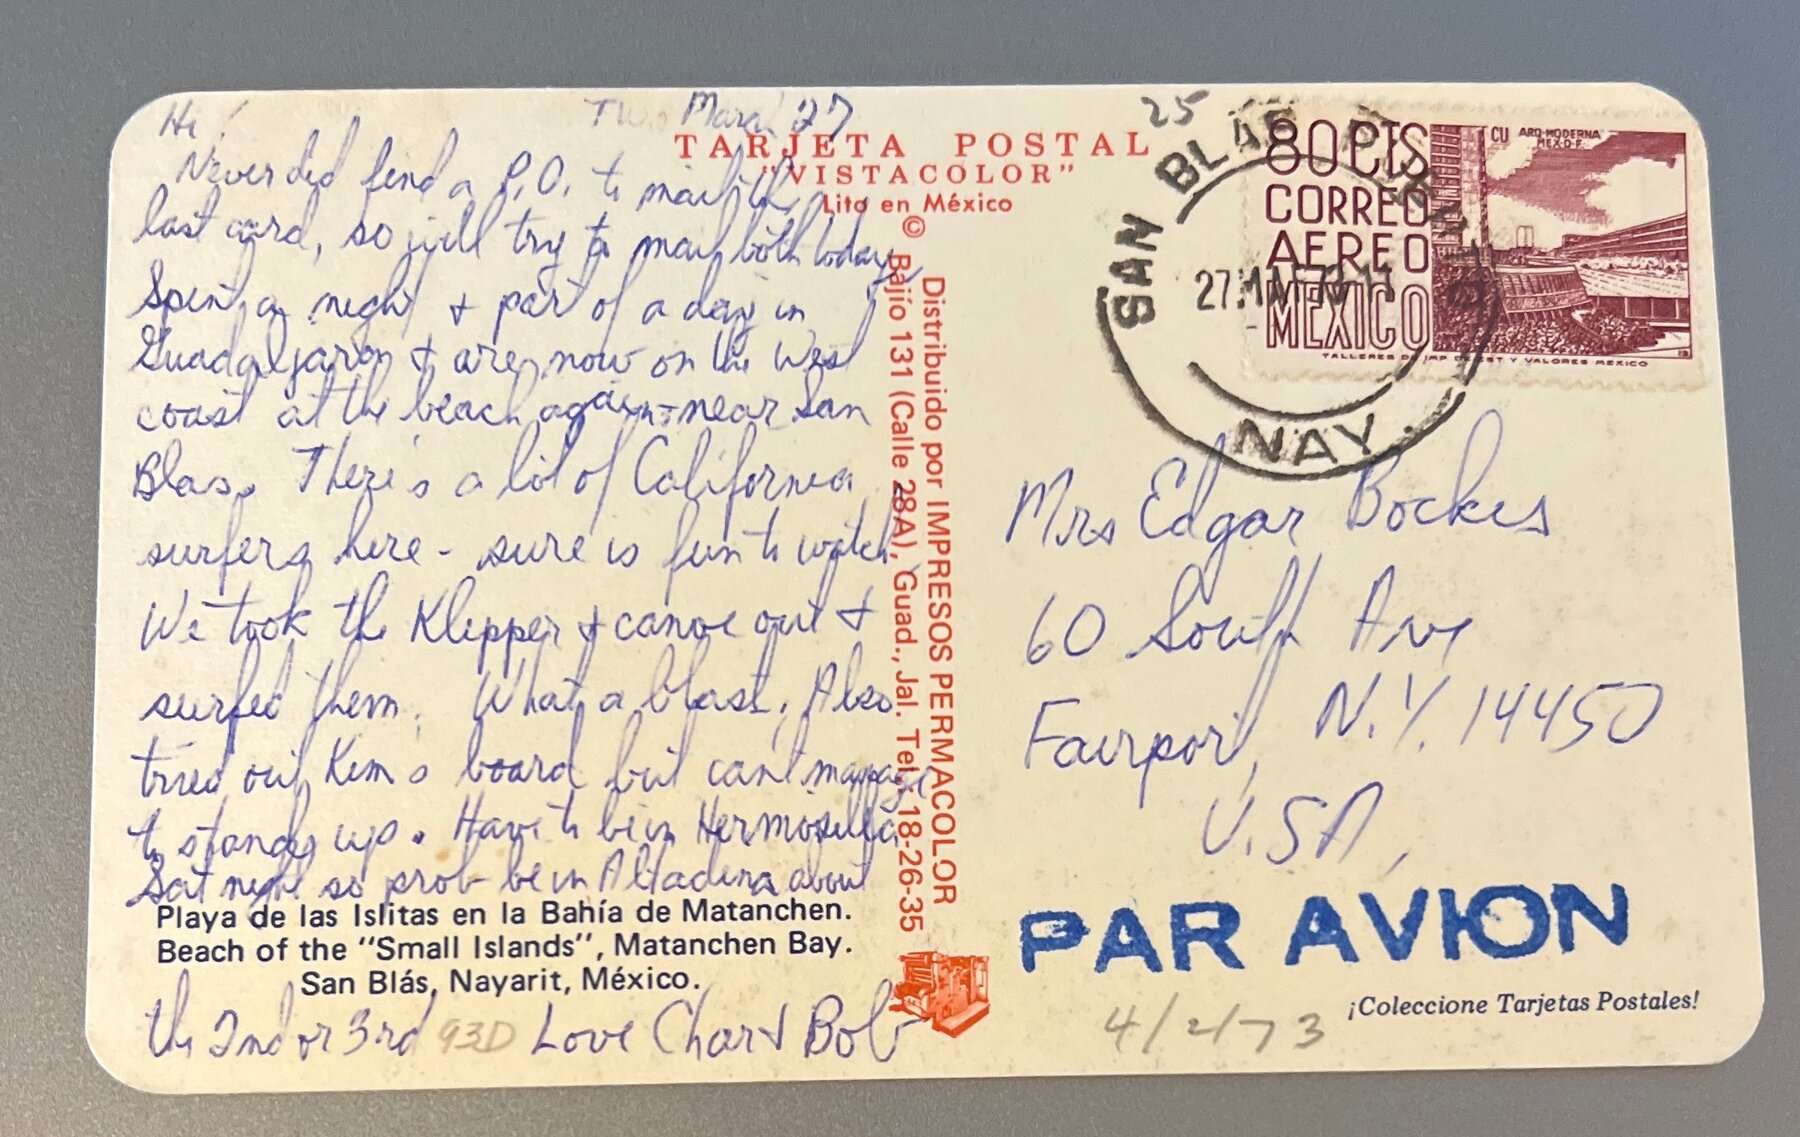 Hi!
March 27
Never did find a P.O. to mail the
last card, so will try to mail both today
Spent a night & part of a day in
Guadaljaron & are now on the West
coast at the beach again - near San
Blas. There's a lot of California
surfers here - sure is fun to watch
We took the Klepper & canoe out &
surfed them. What a blast. Also
tried out Kim's board but can't manage
to stand up. Have to be in Hermosilla
Sat night so prob be in Altadena about
Playa de las Islitas en la Bahía de Matanchen.
Beach of the "Small Islands", Matanchen Bay.
San Blás, Nayarit, México.
the 2nd or 3rd 93D Love Char & Bob
TARJETA POSTAL
"VISTACOLOR"
Lito en México
© Distribuido por IMPRESOS PERMACOLOR
Bajío 131 (Calle 28A), Guad., Jal. Tel. 18-26-35
25
80 CTS
CORREO
AEREO
MEXICO
CU ARQ-MODERNA
MEX.D.F.
TALLERES DE IMP DE EST Y VALORES MEXICO
SAN BLAS
NAY.
Mrs Edgar Bockes
60 South Ave
Fairport, N.Y. 14450
U.S.A.
PAR AVION
¡Coleccione Tarjetas Postales!
4/2/73